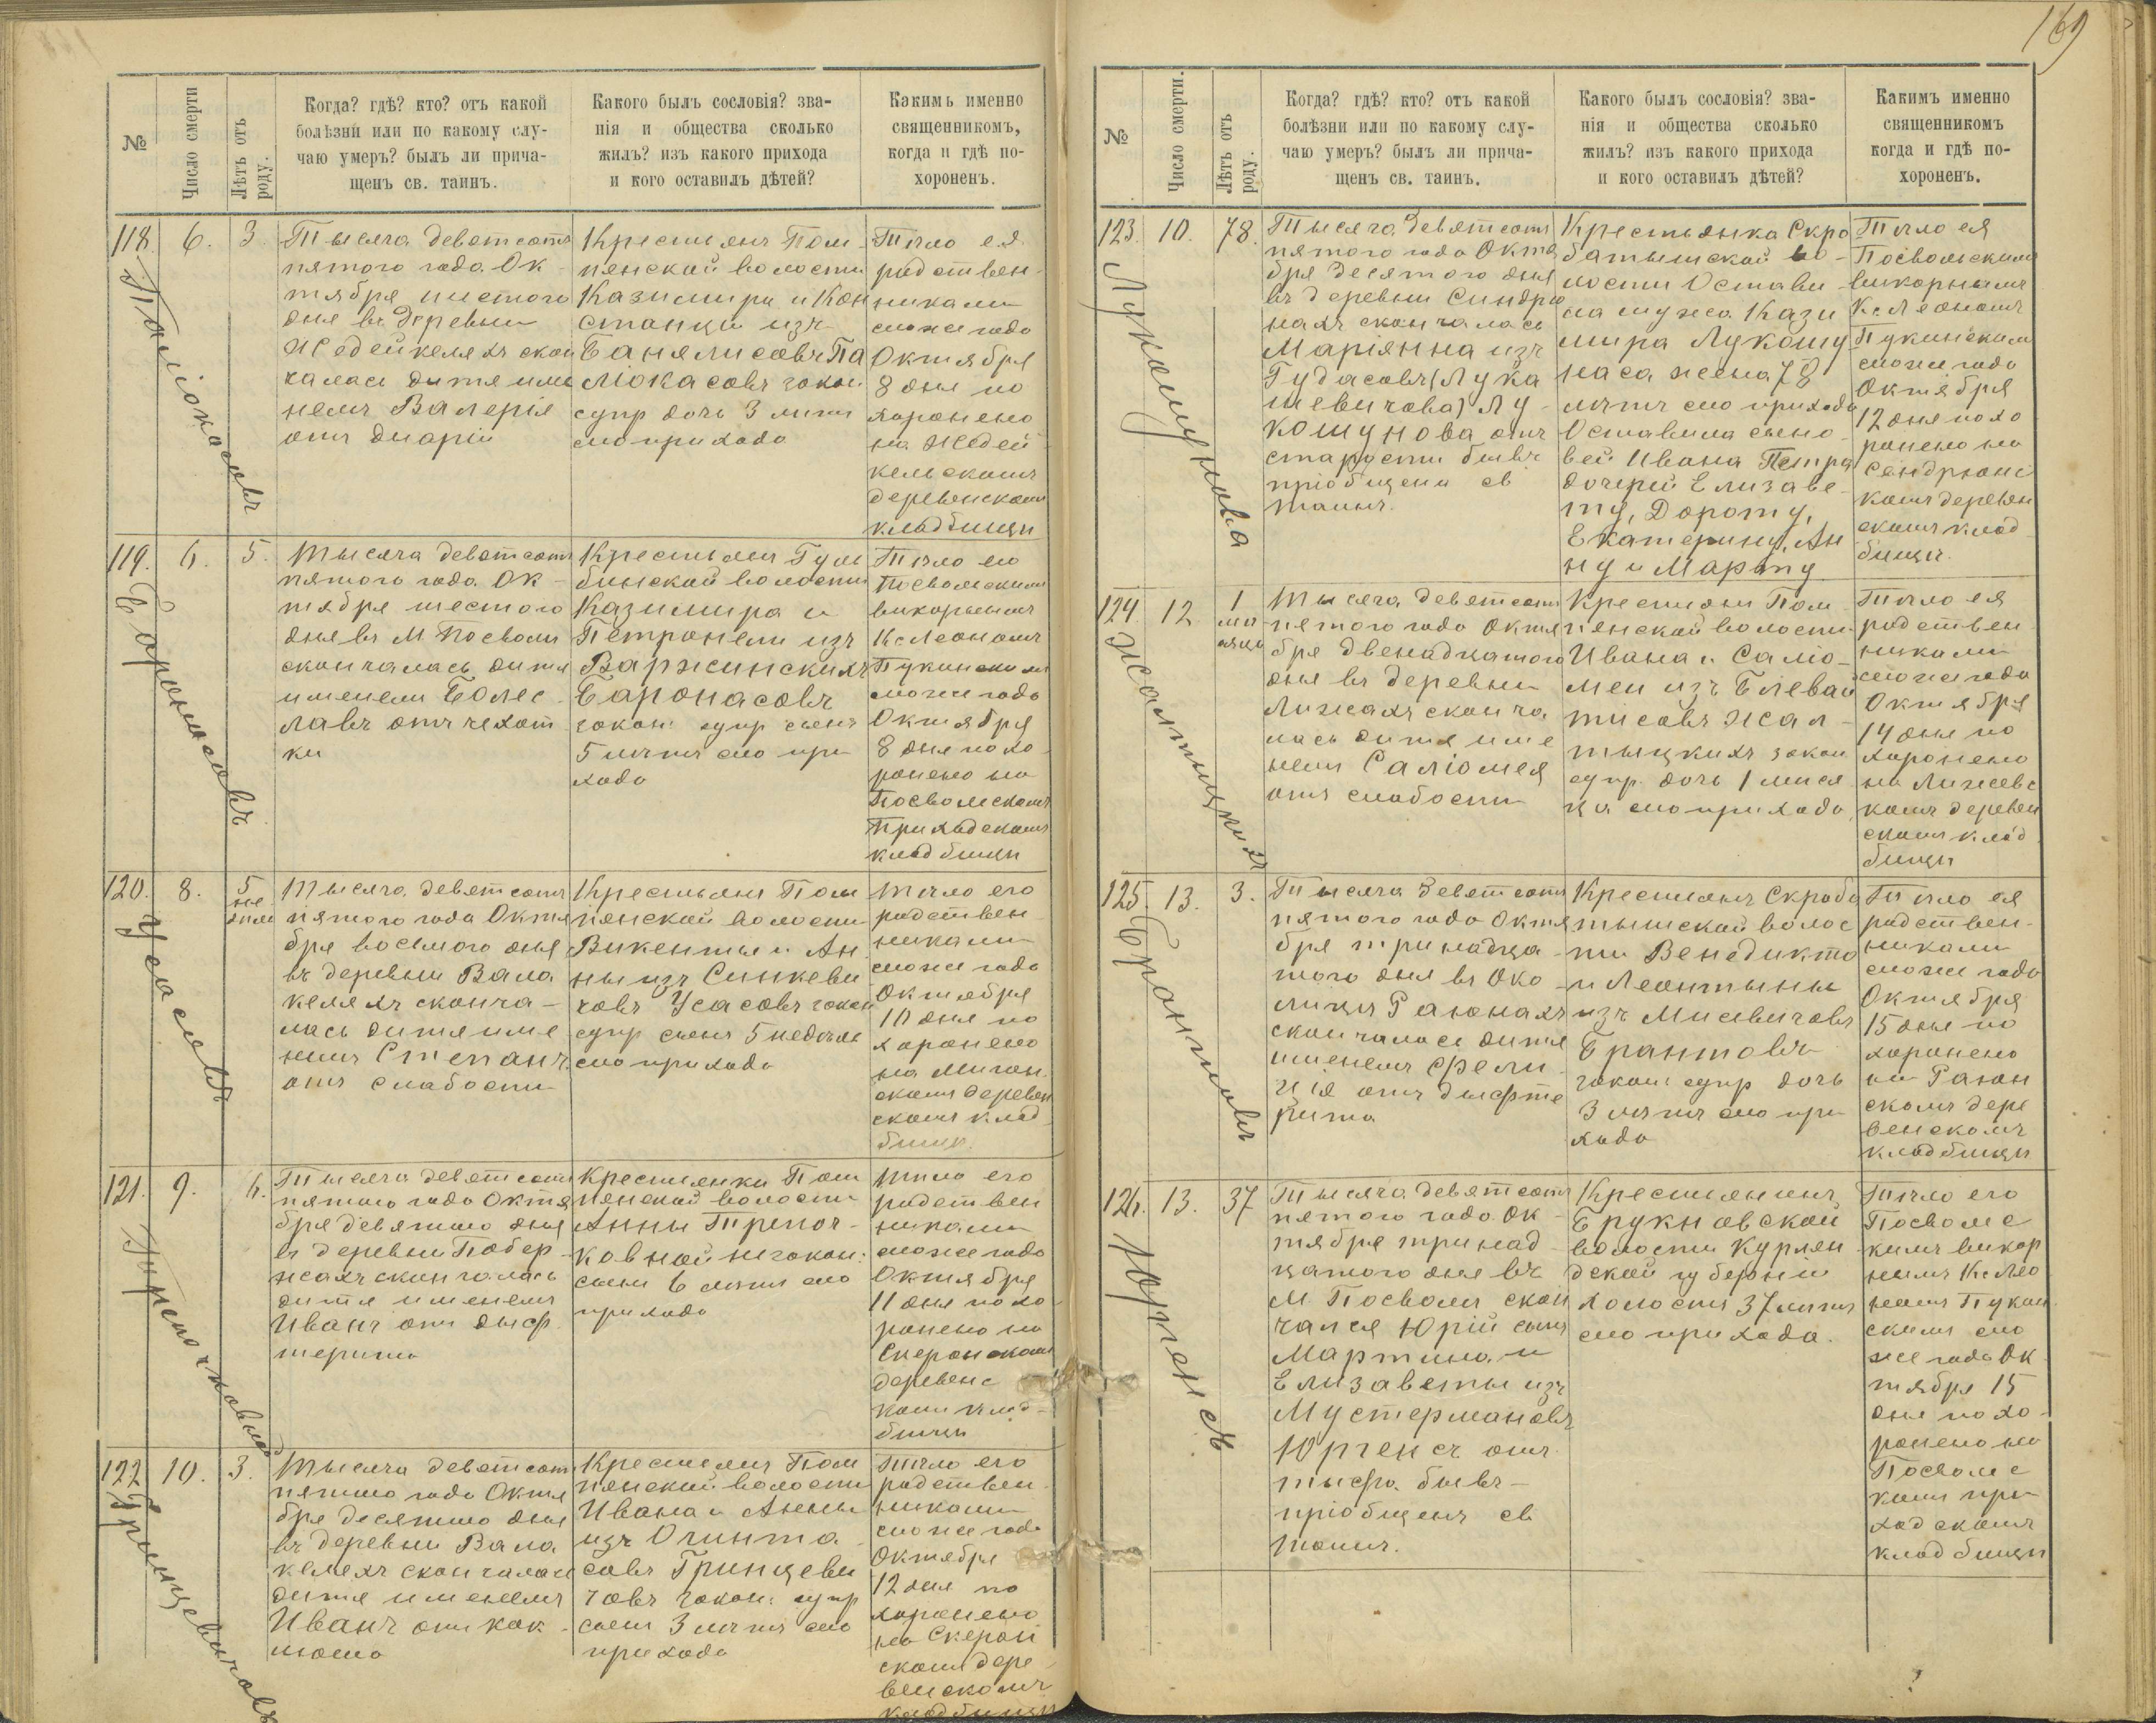 169
№
Число смерти
Лѣтъ отъ роду.
Когда? гдѣ? кто? отъ какой
болѣзни или по какому слу-
чаю умеръ? былъ ли прича-
щенъ св. таинъ.
Какого былъ сословія? зва-
нія и общества сколько
жилъ? изъ какого прихода
и кого оставилъ дѣтей?
Какимъ именно
священникомъ,
когда и гдѣ по-
хороненъ.
118. 6. 3
Тысяча девятсотъ
пятого года Ок-
тября шестого
дня въ деревни
Жедейкеляхъ скон
чалась дитя име
немъ Валерія
отъ
Крестьянъ Пом-
пянской волости
Казимира и Кон
станціи изъ
Банялисовъ Па
ліокасовъ закон
супр дочь 3 лѣтъ
сего прихода
Тѣло ея
родствен-
никами
сего же года
Октября
8 дня по
хоронено
на Жедей
кельскомъ
деревенскомъ
кладбищи
119. 6. 5.
Тысяча девятсотъ
пятого года Ок-
тября шестого
дня въ М Посволи
скончалась дитя
именемъ Болес-
лавъ отъ чехот
ки
Крестьянъ Гуль
бинской волости
Казимира и
Петронели изъ
Варжинскихъ
Баронасовъ
закон супр сынъ
5 лѣтъ сего при
хода
Баронасовъ
Тѣло его
Посвольскимъ
викорнымъ
Кс Леономъ
Пукинскимъ
сего же года
Октября
8 дня похо-
ронено на
Посвольскомъ
Приходскомъ
кладбищи
120. 8. 5 недѣли
Усасовъ
Тысяча девятсотъ
пятого года Октя
бря восьмого дня
въ деревни Вала
келяхъ сконча-
лась дитя име
немъ Степанъ
отъ слабости
Крестьянъ Пом
пянской волости
Викентія и Ан
ны изъ Синкеви
човъ Усасовъ закон
супр сынъ 5 недѣль
сего прихода
Тѣло его
родствен-
никами
сего же года
Октября
10 дня по
хоронено
на
скомъ деревен
скомъ клад
бищи.
121. 9. 6.
Тысяча девятсотъ
пятого года Октя
бря девятого дня
въ деревни Побер-
жахъ скончалась
дитя именемъ
Иванъ отъ диф
терита
Крестьянки Пом
пянской волости
Анны Трепоч-
ковной незакон:
сынъ 6 лѣтъ сего
прихода
Тѣло его
родствен
никами
сего же года
Октября
11 дня похо
ронено на
Скеронскомъ
деревенс
комъ клад-
бищи
122 10. 3.
Гринцевичовъ
Тысяча девятсотъ
пятого года Октя
бря десятого дня
въ деревни Вала
келяхъ скончалась
дитя именемъ
Иванъ отъ кок-
люша
Крестьянъ Пом
пянской волости
Ивана и Анны
изъ Огинта-
совъ Гринцеви
човъ закон: супр
сынъ 3 лѣтъ сего
прихода
Тѣло его
родствен
никами
сего же года
Октября
12 дня по
хоронено
на Скерон
скомъ дере
венскомъ
кладбищи
№
Число смерти.
Лѣтъ отъ роду.
Когда? гдѣ? кто? отъ какой
болѣзни или по какому слу-
чаю умеръ? былъ ли прича-
щенъ св. таинъ.
Какого былъ сословія? зва-
нія и общества сколько
жилъ? изъ какого прихода
и кого оставилъ дѣтей?
Какимъ именно
священникомъ
когда и гдѣ по-
хороненъ.
123. 10. 78.
Лукошунова
Тысяча девятсотъ
пятого года Октя
бря десятого дня
въ деревни Синдрю
нахъ скончалась
Маріянна изъ
Гудасовъ (Лука
шевичова) Лу-
кошунова отъ
старости бывъ
пріобщена св
таинъ.
Крестьянка Скро
батышской во-
лости Остави-
ла мужа Кази
мира Лукошу
наса жена 78
лѣтъ сего прихода
Оставила сыно-
вей Ивана Петра
дочерей Елизаве-
ту, Дороту,
Екатерину, Ан
ну и Марту
Тѣло ея
Посвольскимъ
викорнымъ
Кс Леономъ
Пукинскимъ
сего же года
Октября
12 дня похо
ронено на
Сендрюнс
комъ деревен
скомъ клад
бищи.
124. 12. 1 мѣсяцъ
Жалтыцкихъ
Тысяча девятсотъ
пятого года Октя
бря двенадцатого
дня въ деревни
Лижахъ сконча
лась дитя име
немъ Саліомея
отъ слабости
Крестьянъ Пом
пянской волости
Ивана и Саліо-
меи изъ Блеваи
тисовъ Жал-
тыцкихъ закон
супр. дочь 1 мѣся
ца сего прихода
Тѣло ея
родствен
никами
сего же года
Октября
14 дня по
хоронено
на Лижевс
комъ деревен
скомъ клад
бищи
125. 13. 3.
Брантовъ
Тысяча девятсотъ
пятого года Октя
бря тринадца-
того дня въ Око-
лицы Раюнахъ
скончалась дитя
именемъ Фели-
ція отъ дифте
рита
Крестьянъ Скроба
тышской волос
ти Венедикта
и Леонтыны
изъ Мисевичовъ
Брантовъ
закон супр дочь
3 лѣтъ сего при
хода
Тѣло ея
родствен-
никами
сего же года
Октября
15 дня по
хоронено
на Раюн
скомъ дере
венскомъ
кладбищи
126. 13. 37
Юргенсъ
Тысяча девятсотъ
пятого года Ок-
тября тринад-
цатого дня въ
М. Посволи скон
чался Юрій сынъ
Мартина и
Елизаветы изъ
Мустермановъ
Юргенсъ отъ
тыфа бывъ-
пріобщенъ св
таинъ.
Крестьянинъ
Брукновской
волости Курлян
дской губерніи
холостъ 37 лѣтъ
сего прихода.
Тѣло его
Посвольс
кимъ викор
нымъ Кс Лео
номъ Пукин
скимъ сего
же года Ок
тября 15
дня похо-
ронено на
Посвольс
комъ при
ходскомъ
кладбищи